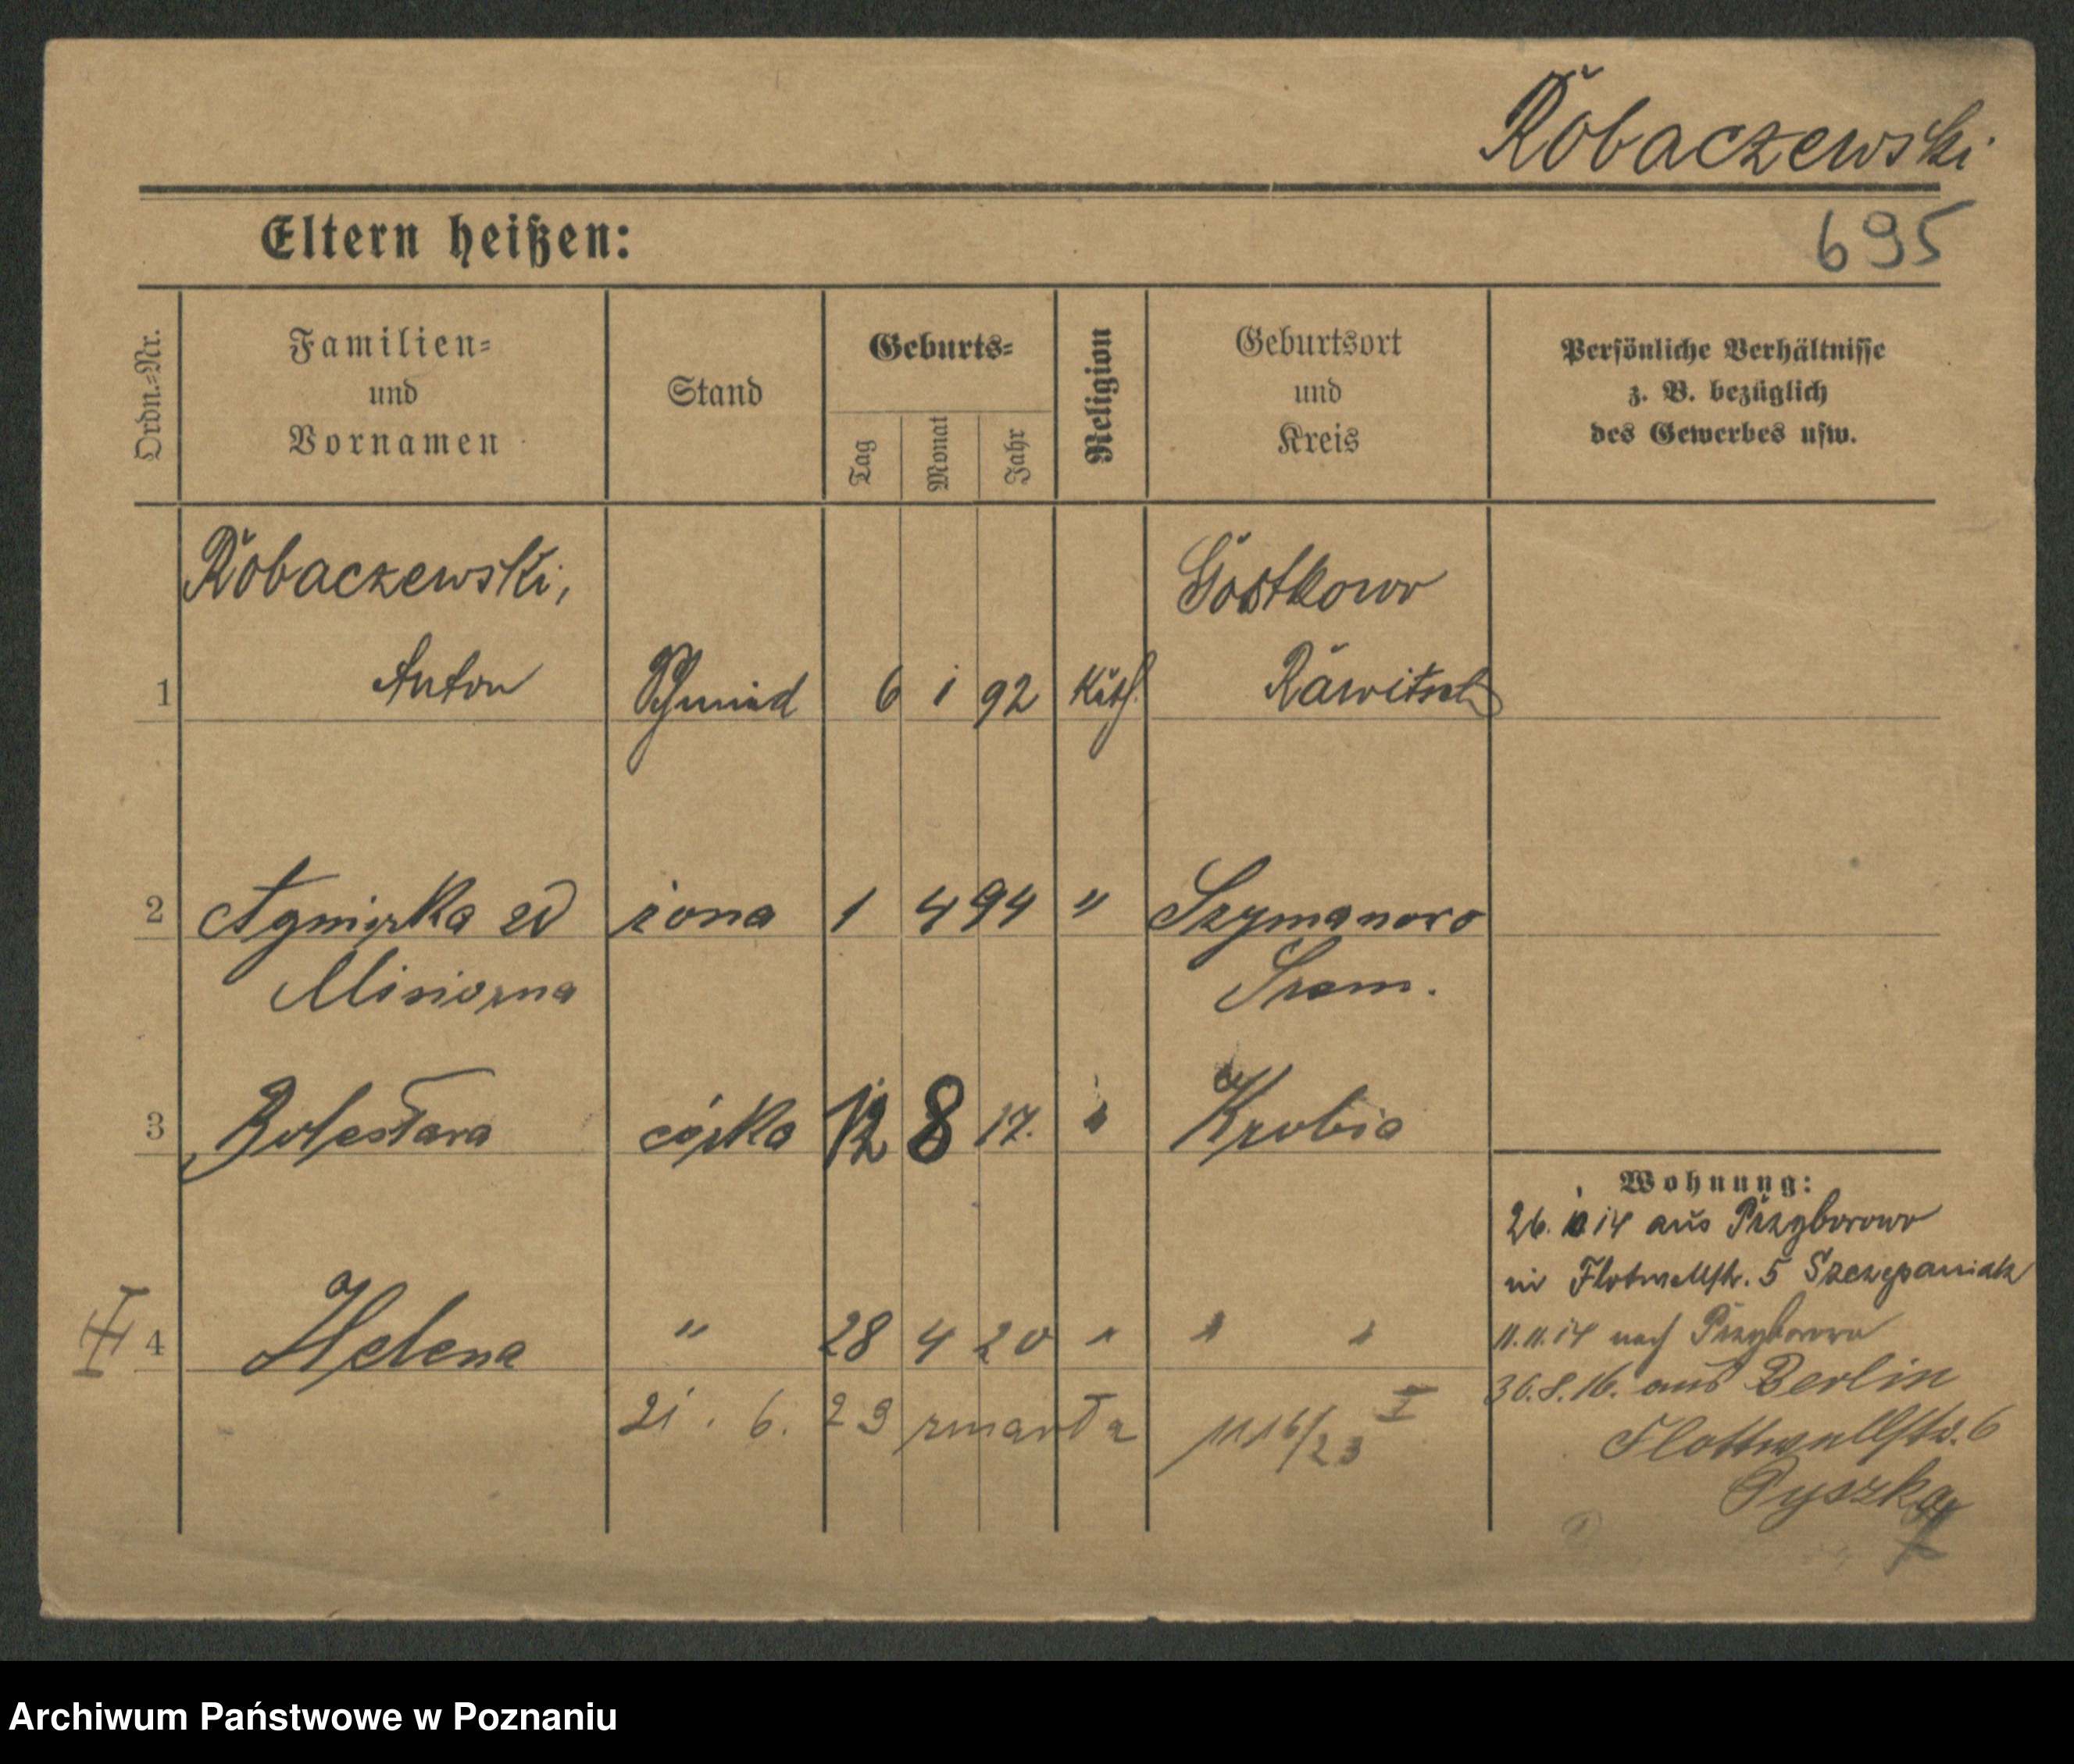 Robaczewski
695
Eltern heißen:
Ordn.=Nr.
Familien=
und
Vornamen
Stand
Geburts=
Tag
Monat
Jahr
Religion
Geburtsort
und
Kreis
Persönliche Verhältnisse
z. B. bezüglich
des Gewerbes usw.
Robaczewski, Gostkowo
1 Anton Schmied 6 1 92 Kath. Rawitsch
2 Agnieszka żona 1 4 94 " Szymanowo
Misiorna Szrem.
3 Bolesława córka 12 8 17. " Krobia
Wohnung:
26. 14 aus Przyborowo
in Flotwellstr. 5 Szczepaniak
4 Helena " 28 4 20 " " "
11.11.14 nach Przyborowo
30.8.16. aus Berlin
21. 6. 23 zmarła 1116/23
Flottwellstr. 6
Pyszka
Archiwum Państwowe w Poznaniu